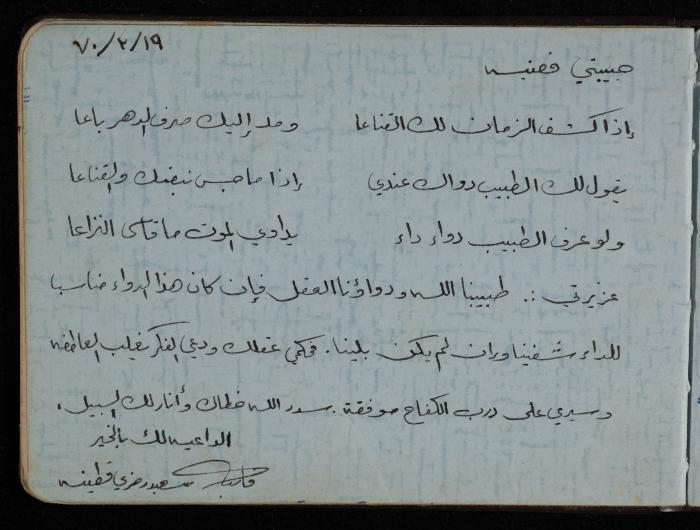 ٧٠/٢/١٩
حبيبتي
إذا كشف الزمان لك القناعا ومد إليك صرف الدهر باعا
يقول لك الطبيب دواك عندي إذا ما جس نبضك والقناعا
ولو عرف الطبيب دواء داء يداوي الموت ما قاسى النزاعا
عزيزتي :. طبيبنا الله ودواؤنا العقل فإن كان هذا الدواء مناسبا
للداء شفينا وإن لم يكن بلينا. فحكمي عقلك ودعي الفكر يغلب العاطفه
وسيري على درب الكفاح موفقة. سدد الله خطاك وأنار لك السبيل.
الداعيه لك بالخير